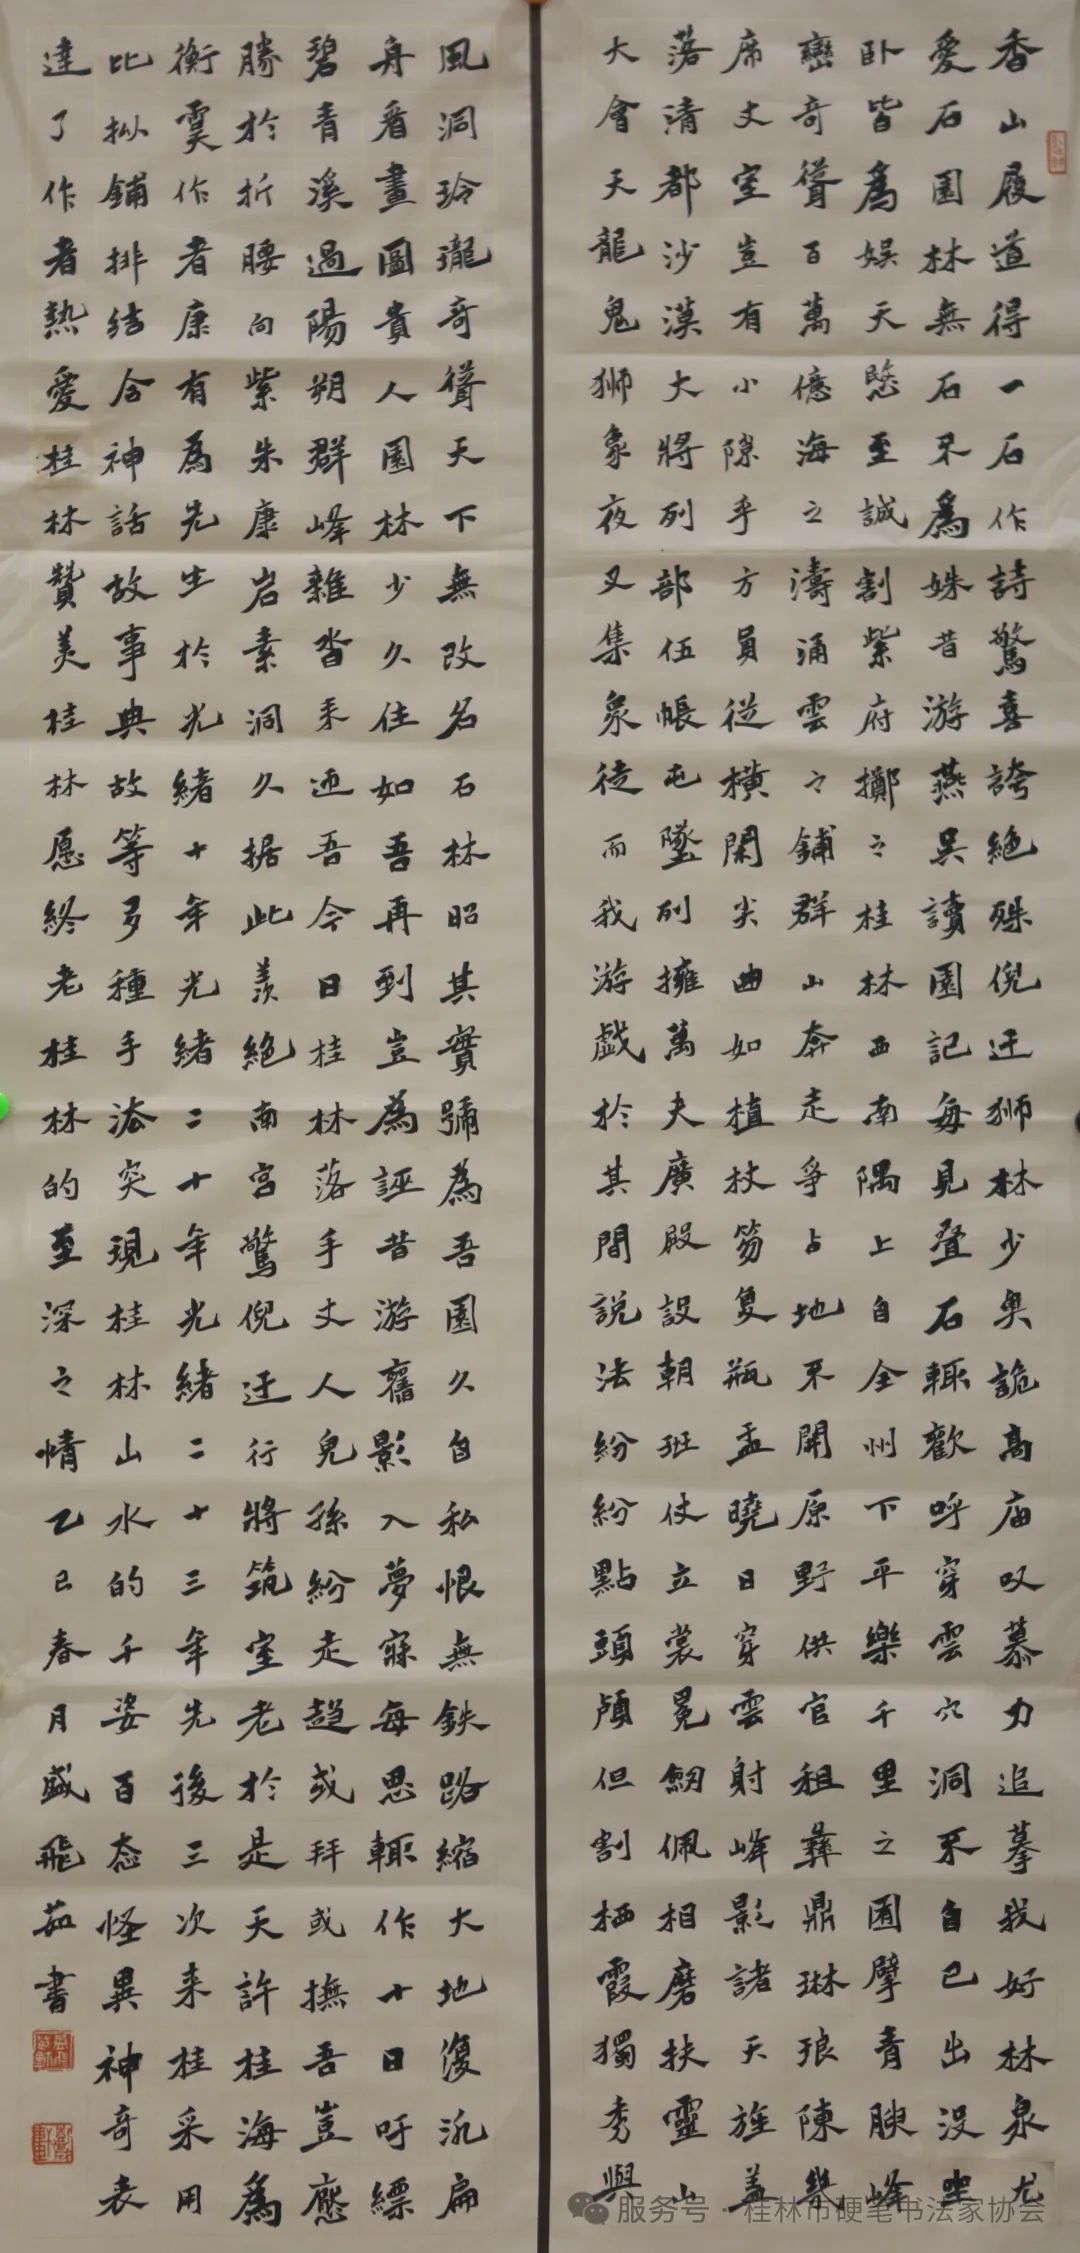 香山履道得一石作詩驚喜誇絕殊倪迂獅林少奧詭高庙叹慕力追摹我好林泉尤
愛石園林無石不爲姝昔游燕吳讀園記每見叠石輒歡呼穿雲穴洞不自已出没坐
卧皆爲娱天愍至誠割紫府擲之桂林西南隅上自全州下平樂千里之囿擘青腴峰
巒奇聳百萬億海之濤涌雲々鋪群山奔走爭占地不開原野供官租彝鼎琳琅陳幾
席丈室豈有小隙乎方員從橫閑尖曲如植杖笏复瓶盂曉日穿雲射峰影諸天旌蓋
落清都沙漠大將列部伍帳屯墜列擁萬夫廣殿設朝班仗立裳冕劒佩相磨扶靈山
大會天龍鬼獅象夜叉集衆徒而我游戲於其間說法紛紛點頭顱但割栖霞獨秀與
風洞玲瓏奇聳天下無改名石林昭其實號為吾園久自私恨無鉄路縮大地復汎扁
舟看畫圖貴人園林少久住如吾再到豈為誣昔游舊影入夢寐每思輒作十日呼縹
碧青溪過陽朔群峰雜沓来迎吾今日桂林落手丈人兒孫紛走趨或拜或撫吾豈應
勝於折腰向紫朱康岩素洞久据此羡絕南宮驚倪迂行將筑室老於是天許桂海爲
衡霙作者康有為先生於光緒十年光緒二十年光緒二十三年先後三次来桂采用
比拟鋪排結合神話故事典故等多種手法突現桂林山水的千姿百态怪異神奇表
達了作者熱愛桂林贊美桂林愿終老桂林的至深之情乙巳春月盛飛茹書
服务号·桂林市硬笔书法家协会